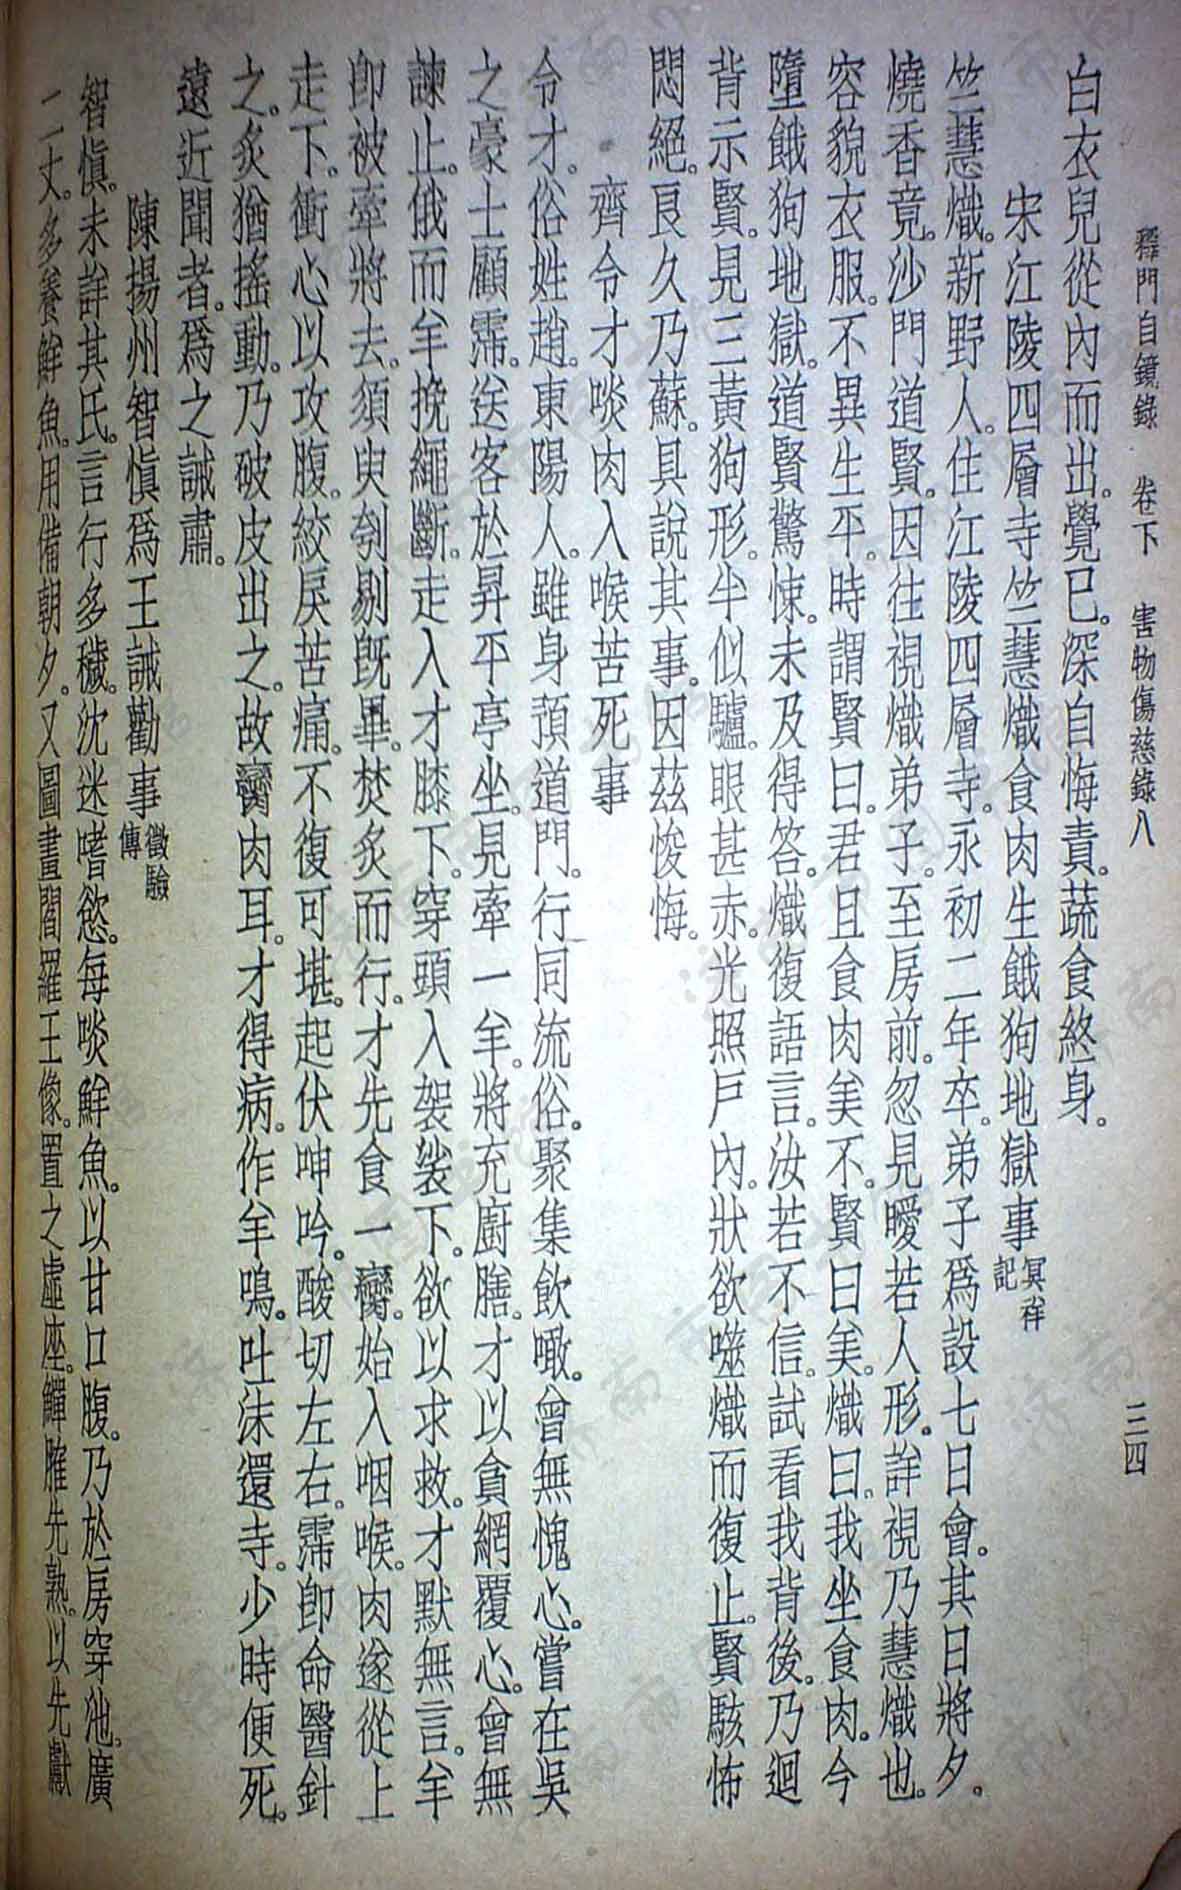 釋門自鏡錄 卷下 害物傷慈錄八 三四
白衣兒從內而出。覺已。深自悔責。蔬食終身。
宋江陵四層寺竺慧熾食肉生餓狗地獄事 冥祥記
竺慧熾。新野人。住江陵四層寺。永初二年卒。弟子爲設七日會。其日將夕。
燒香竟。沙門道賢。因往視熾弟子。至房前。忽見曖若人形。詳視乃慧熾也。
容貌衣服。不異生平。時謂賢曰。君且食肉美不。賢曰美。熾曰。我坐食肉。今
墮餓狗地獄。道賢驚悚。未及得答。熾復語言。汝若不信。試看我背後。乃迴
背示賢。見三黃狗形。半似驢。眼甚赤。光照戶內。狀欲噬熾而復止。賢駭怖
悶絕。良久乃蘇。具說其事。因茲悛悔。
齊令才啖肉入喉苦死事
令才。俗姓趙。東陽人。雖身預道門。行同流俗。聚集飲噉。曾無愧心。嘗在吳
之豪士顧霈。送客於昇平亭坐。見牽一羊。將充廚膳。才以貪網覆心。曾無
諫止。俄而羊挽繩斷。走入才膝下。穿頭入袈裟下。欲以求救。才默無言。羊
即被牽將去。須臾刳剔既畢。焚炙而行。才先食一臠。始入咽喉。肉遂從上
走下。衝心以攻腹。絞戾苦痛。不復可堪。起伏呻吟。酸切左右。霈即命醫針
之。炙猶搖動。乃破皮出之。故臠肉耳。才得病。作羊鳴。吐沫還寺。少時便死。
遠近聞者。爲之誡肅。
陳揚州智慎爲王誡勸事 徵驗傳
智慎。未詳其氏。言行多穢。沈迷嗜慾。每啖鮮魚。以甘口腹。乃於房穿池。廣
二丈。多養鮮魚。用備朝夕。又圖畫閻羅王像。置之虛座。鱓脽先熟。以先獻